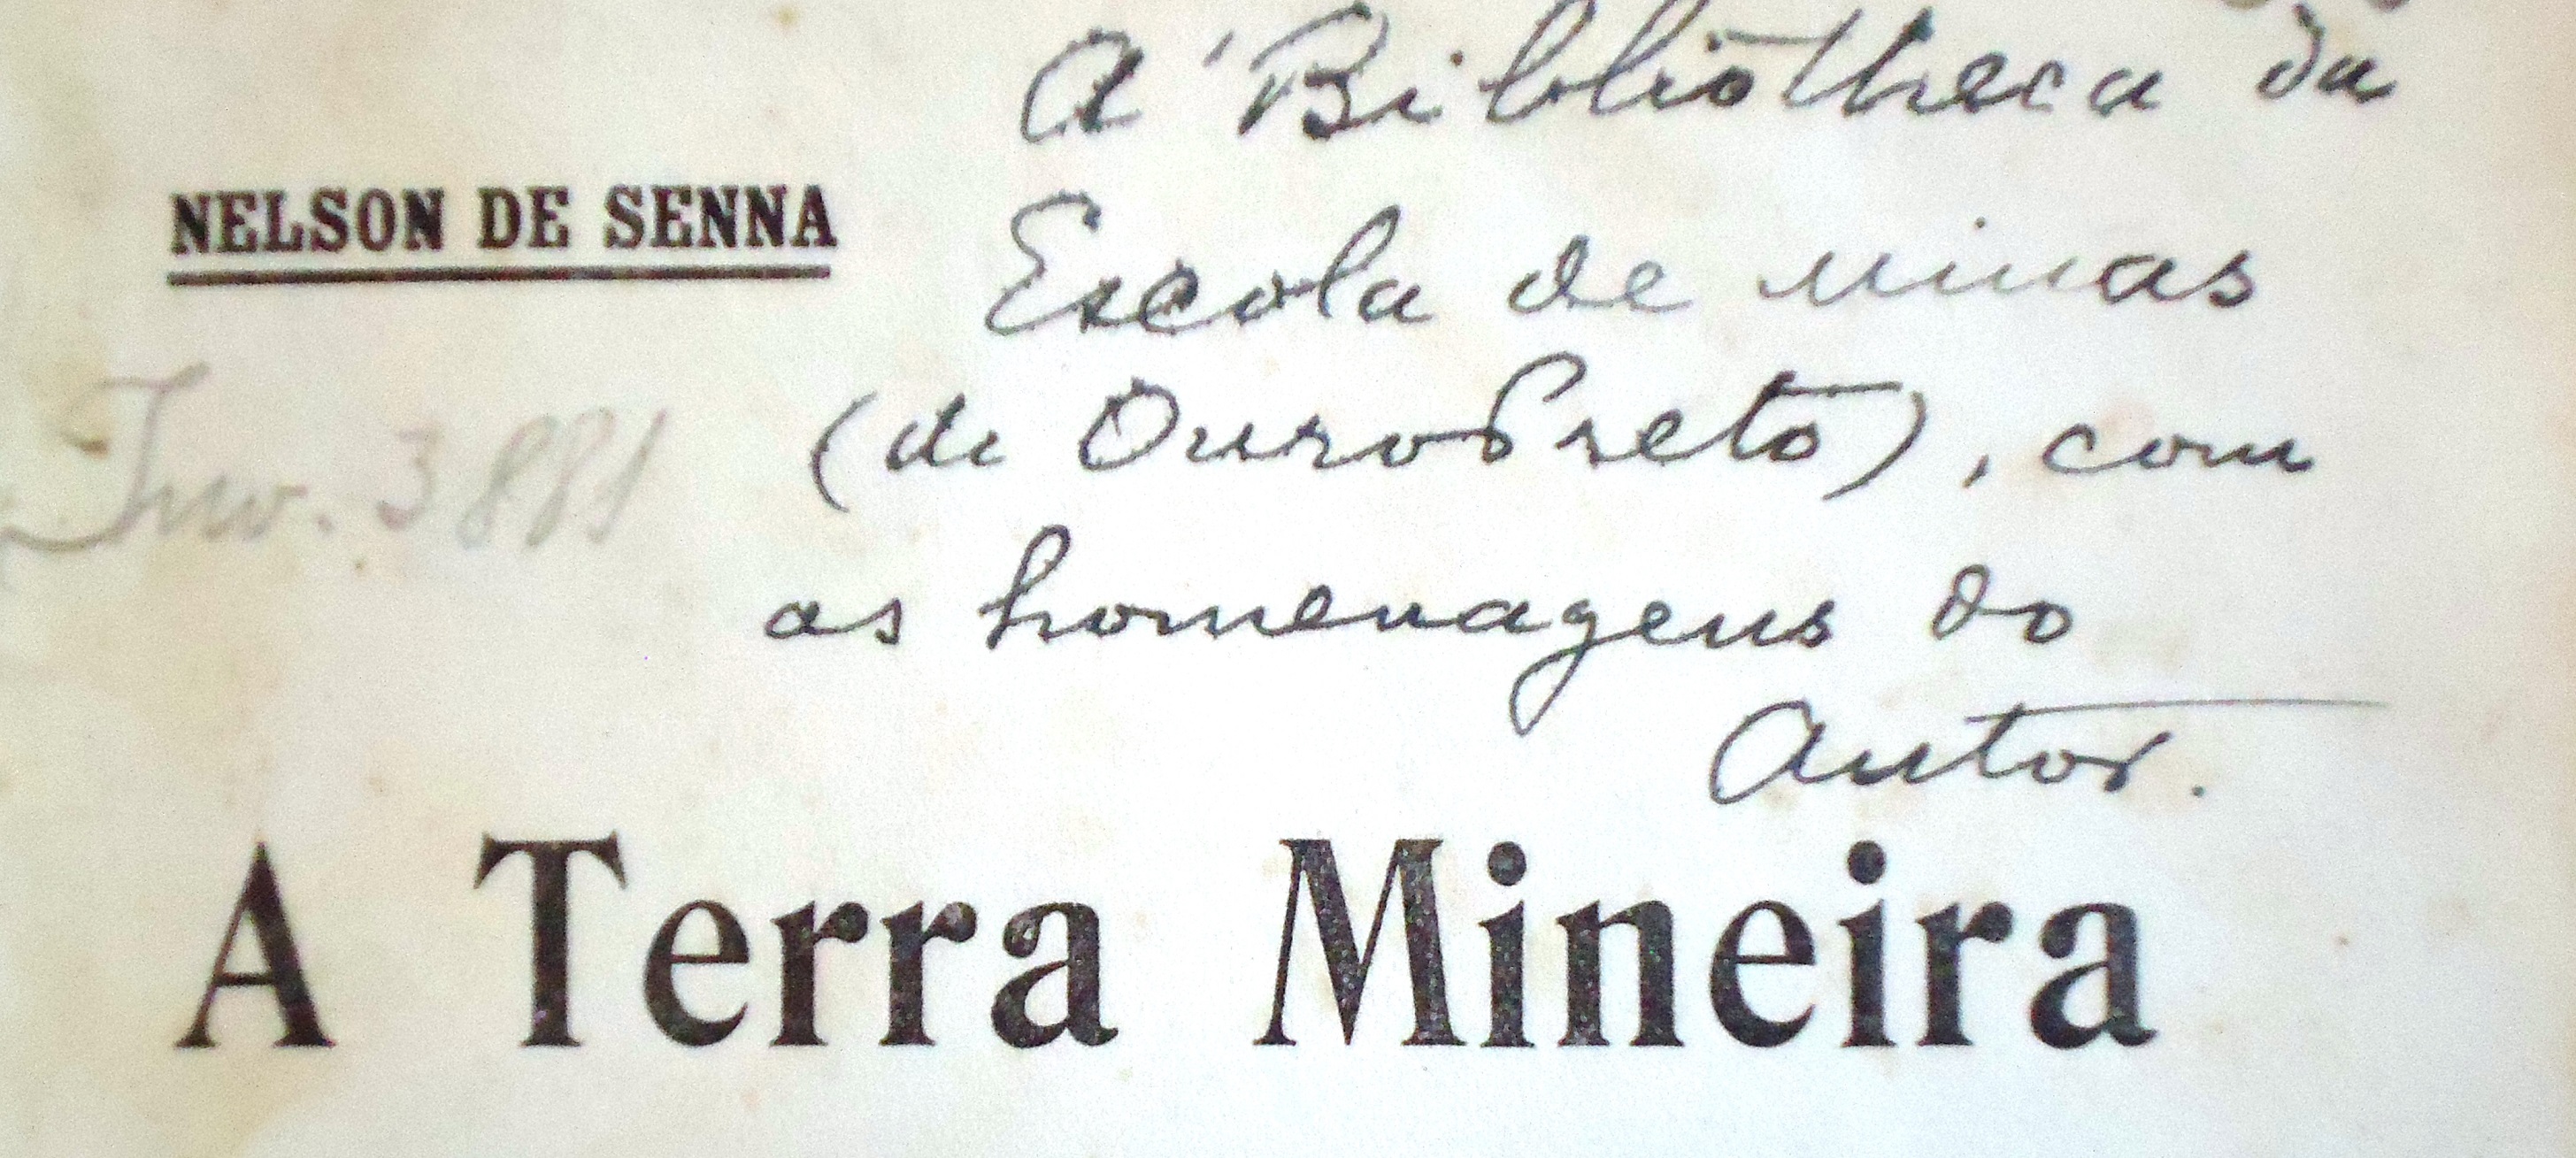 A' Bibliotheca da
NELSON DE SENNA
Escola de minas
(de Ouro Preto), com
Inv. 3881
as homenagens do
Autor.
A Terra Mineira